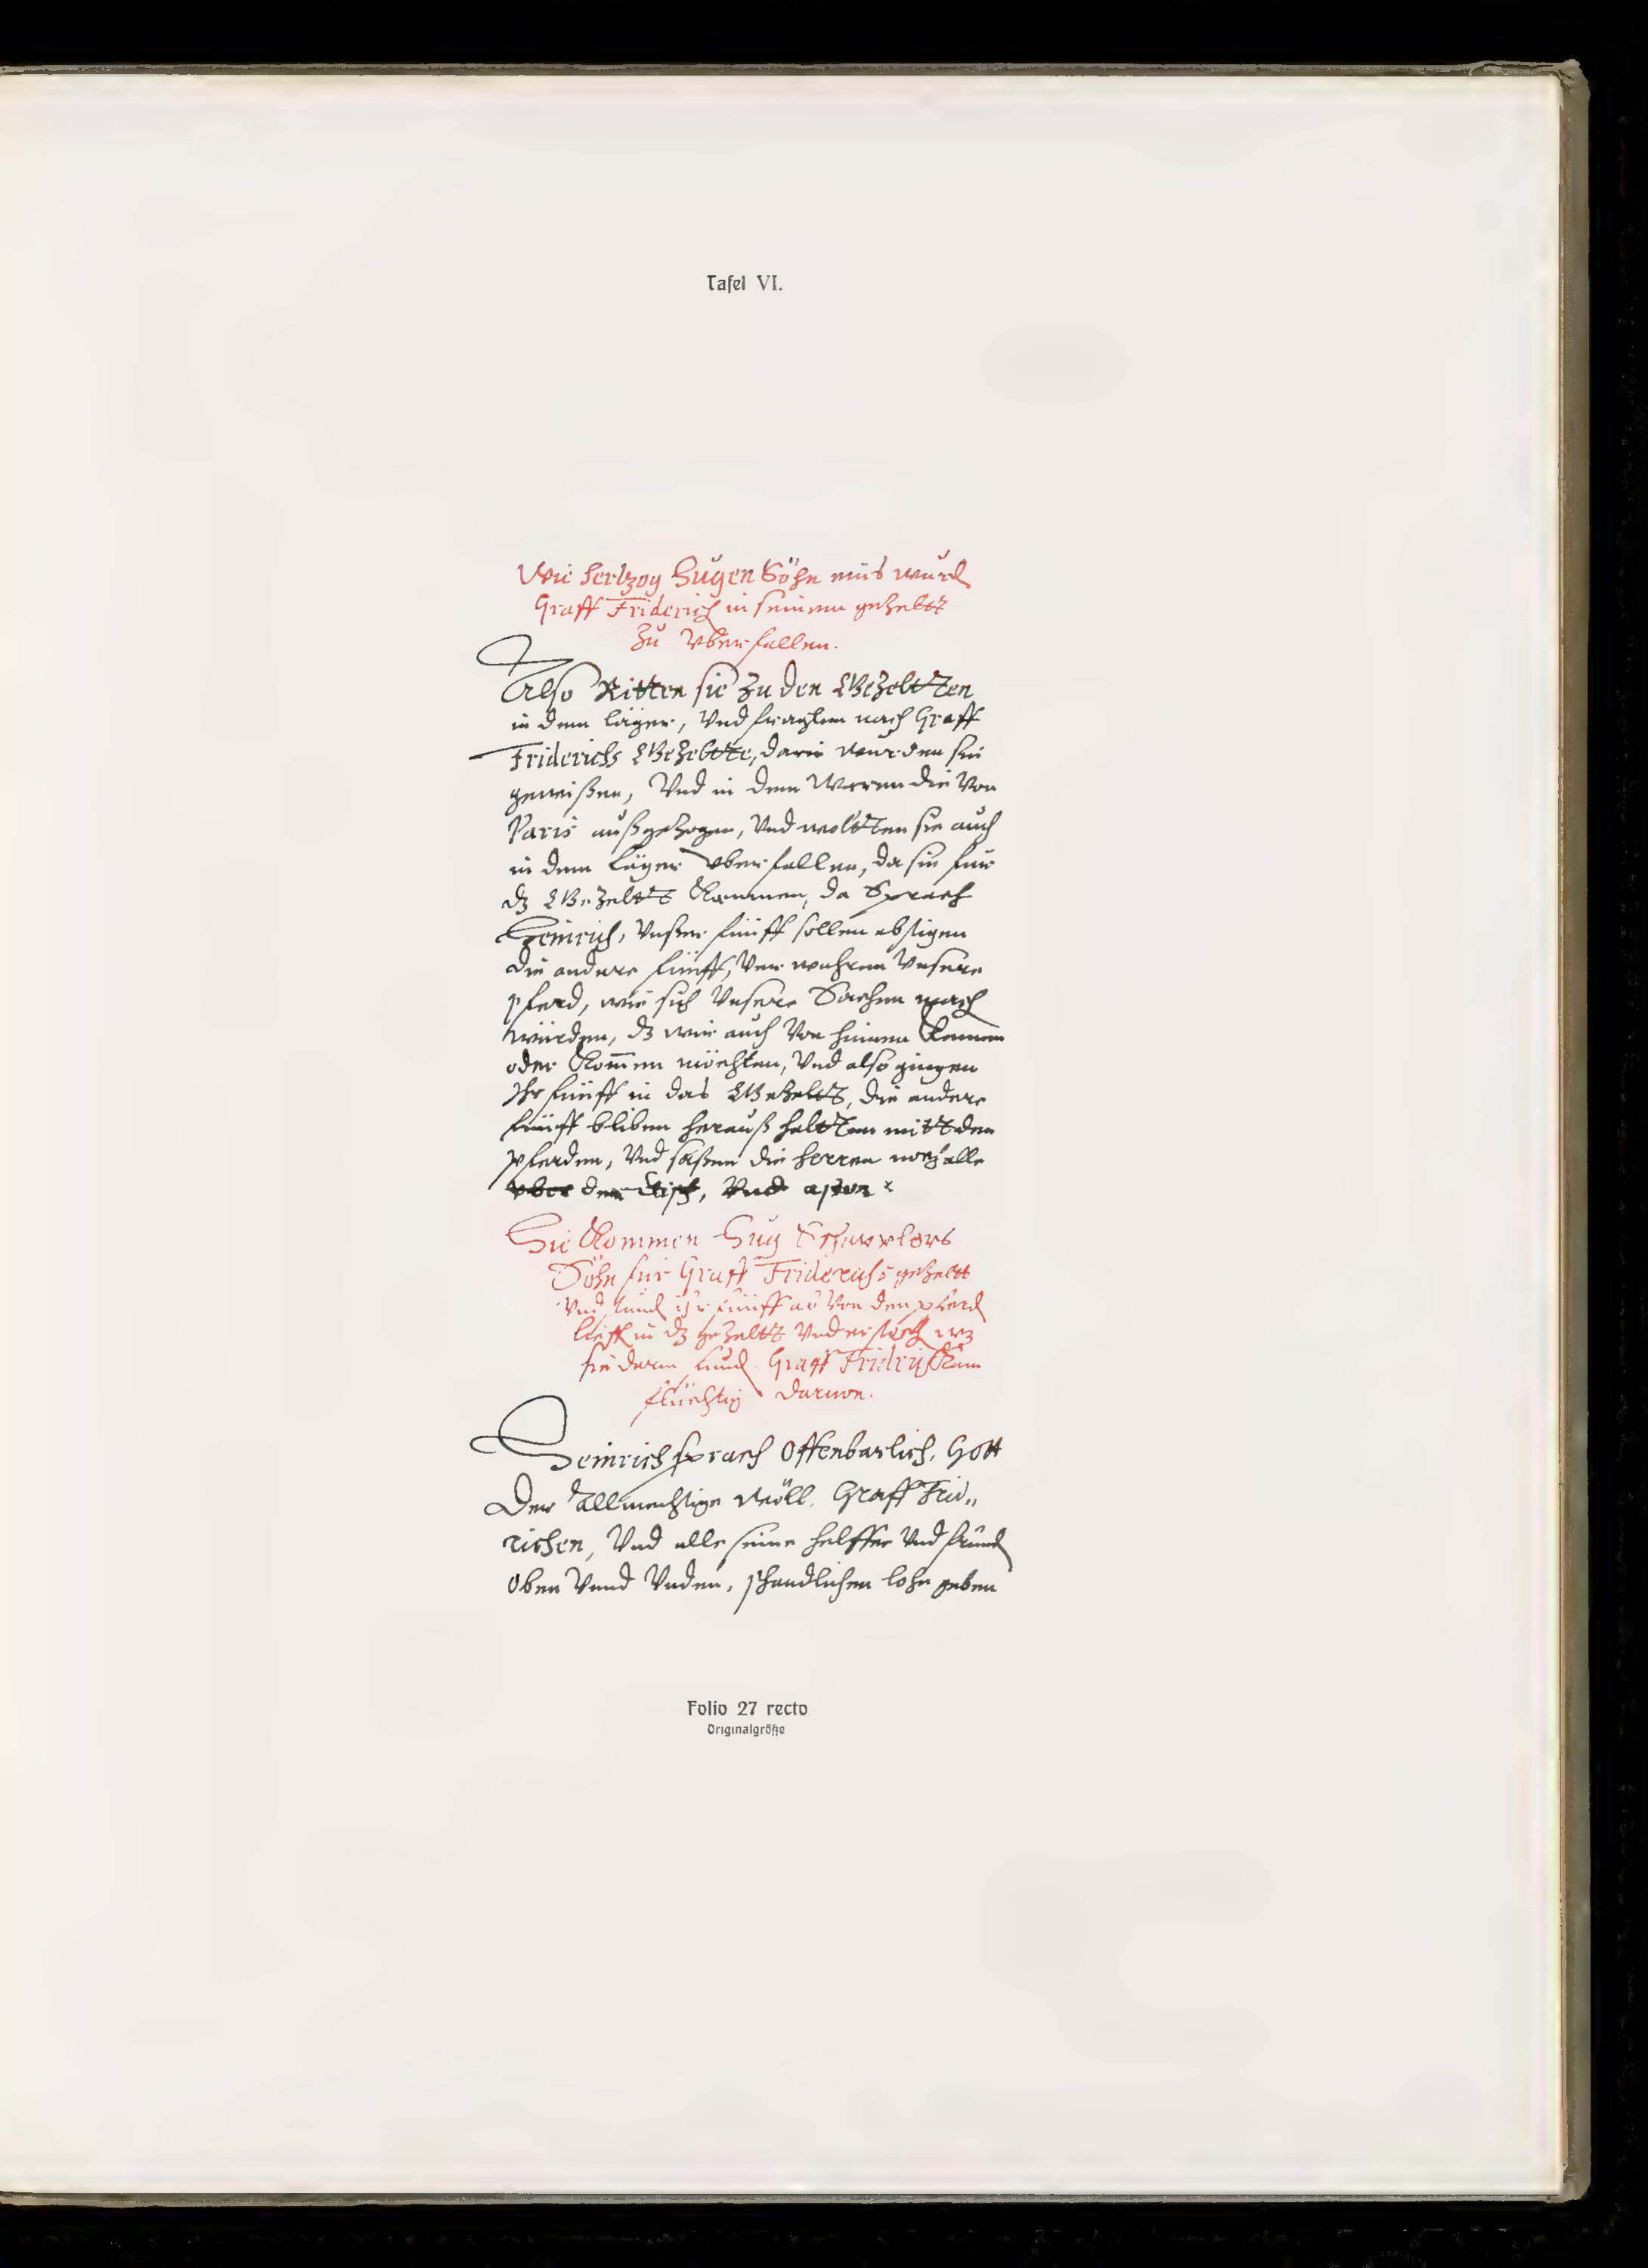 Tafel VI.
Wie Hertzog Hugen Söhn eins wurd
Graff Friderich in seinem gezeltt
Zu Vberfallen.
Also Ritten sie Zu den Gezeltten
in dem läger, Vnd fragten nach Graff
Friderichs Gezeltte, darin wurden sie
geweißen, Vnd in dem Waren die Von
Paris außgezogen, Vnd woltten sie auch
in dem Läger vberfallen, da sie fur
dz Gezeltt Kammen, da Sprach
Heinrich, Vnßer fünff sollen absigen
die andere fünff, Ver wahren Vnsere
pferd, wie sich Vnsere Sachen mach
würden, dz wir auch Von hinnen
oder Kom̅en möchten, Vnd also gingen
Ihr fünff in das Gezeltt, die andere
fünff bliben herauß haltten mitt den
pferden, Vnd saßen die herren noch alle
vber den tisch, Vnd
Hie Kommen Hug
Söhn für Graff Friderichs gezeltt
Vnd ihr fünff ab Von den pferd
in dz gezeltt Vnd
sie darin fund Graff Friderich Kam
flüchtig daruon.
Heinrich sprach Offenbarlich, Gott
Der Allmechtige wöll, Graff Frid„
richen, Vnd alle seine helffer Vnd fründ
Oben Vnnd Vnden, schandlichen lohn geben
Folio 27 recto
Originalgröße